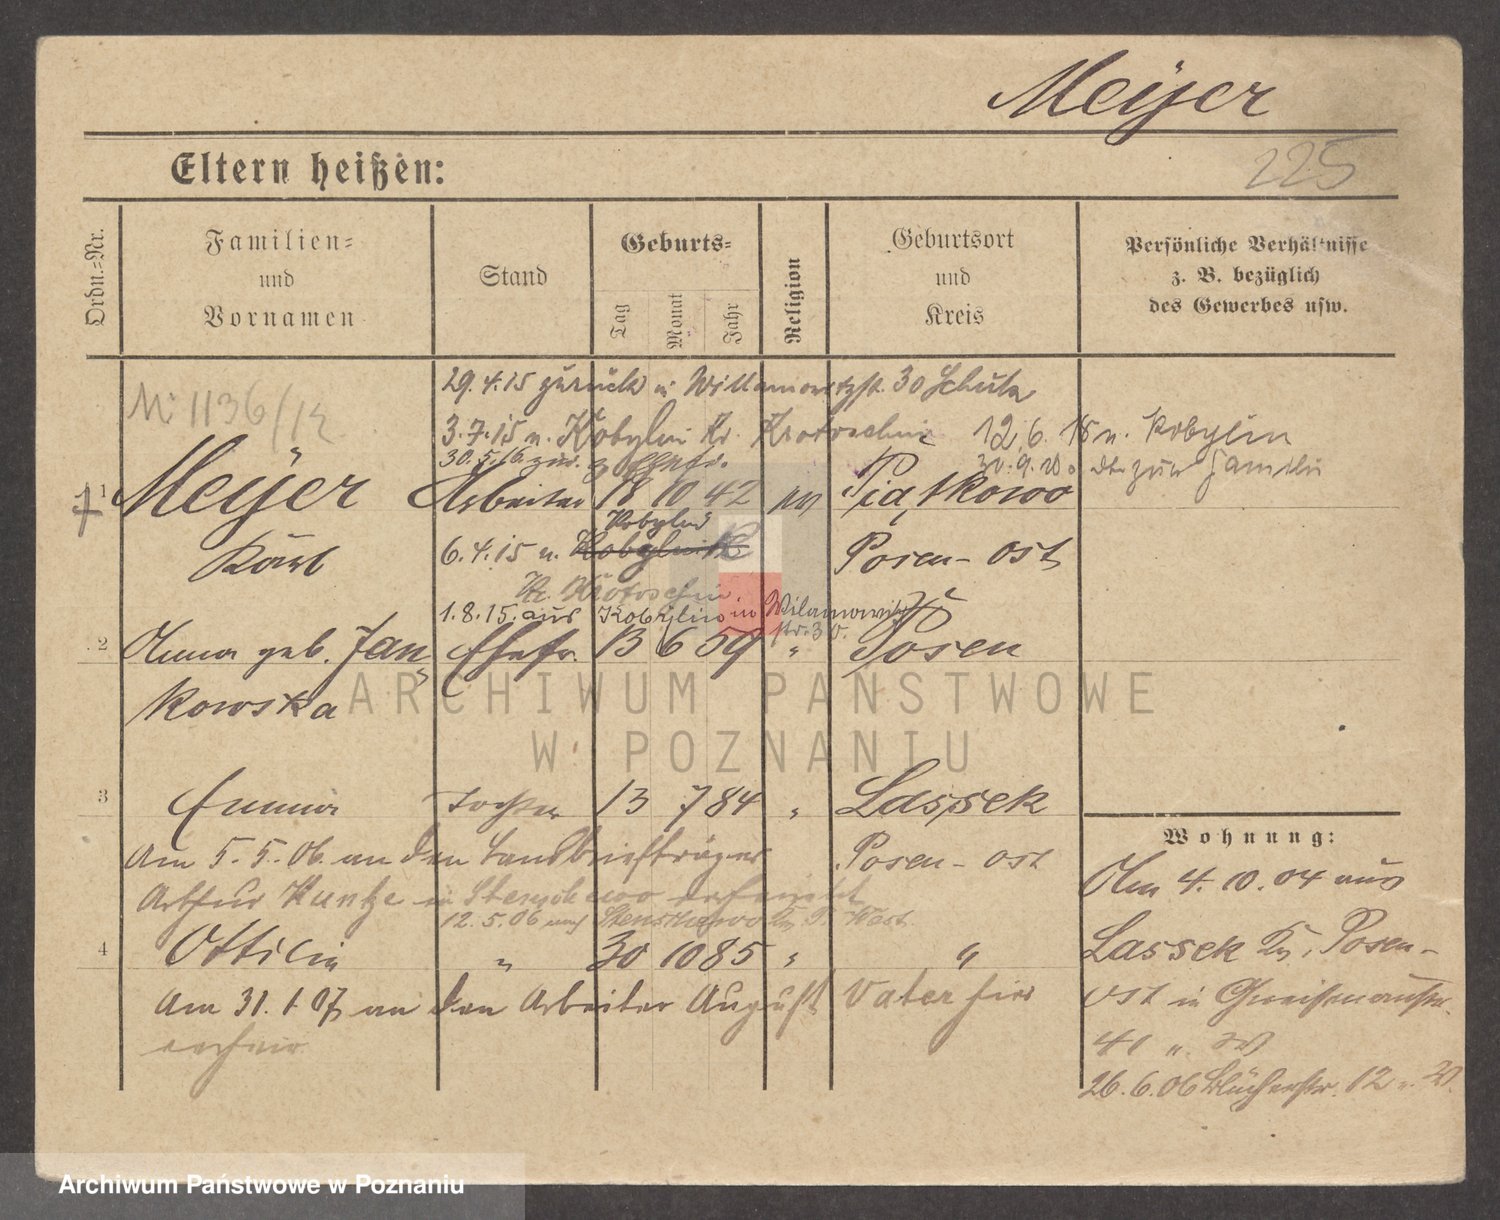 Meÿer
225
Eltern heißen:
Ordn.=Nr.
Familien=
und
Vornamen
Stand
Geburts=
Tag
Monat
Jahr
Religion
Geburtsort
und
Kreis
Persönliche Verhältnisse
z. B. bezüglich
des Gewerbes usw.
29.4.15 zurück n Willamowitzstr. 30 Schulz
M: 1136/12
3.7.15 n. Kobylin Kr. Krotoschin 12.6.18 n. Kobylin
30.5.16 zur. z. Ehefr. 30.9.20 zur Familie
1 Meÿer Arbeiter 18 10 42 Piątkowo
Kobylin
Karl 6.4.15 n. Kobylnik Posen-Ost
Kr. Krotoschin
1.8.15. aus Kobylin in Wilamowitz
str. 30.
2 Anna geb. Jan= Ehefr. 13 6 59 " Posen
kowska
ARCHIWUM PAŃSTWOWE
W POZNANIU
3 Emma Tochter 13 7 84 " Lassek
Am 5.5.06. an den Landbriefträger Posen-Ost
Arthur Kuntze in Stenschewo verheiratet
12.5.06 nach Stenschewo Kr. P. West
4 Ottilie " 30 10 85 " "
Am 31.1.07 an den Arbeiter August Vater hier
verheir
Wohnung:
Am 4.10.04 aus
Lassek Kr. Posen-
Ost in Gneisenaustr.
40
26.6.06 Blücherstr. 12
Archiwum Państwowe w Poznaniu